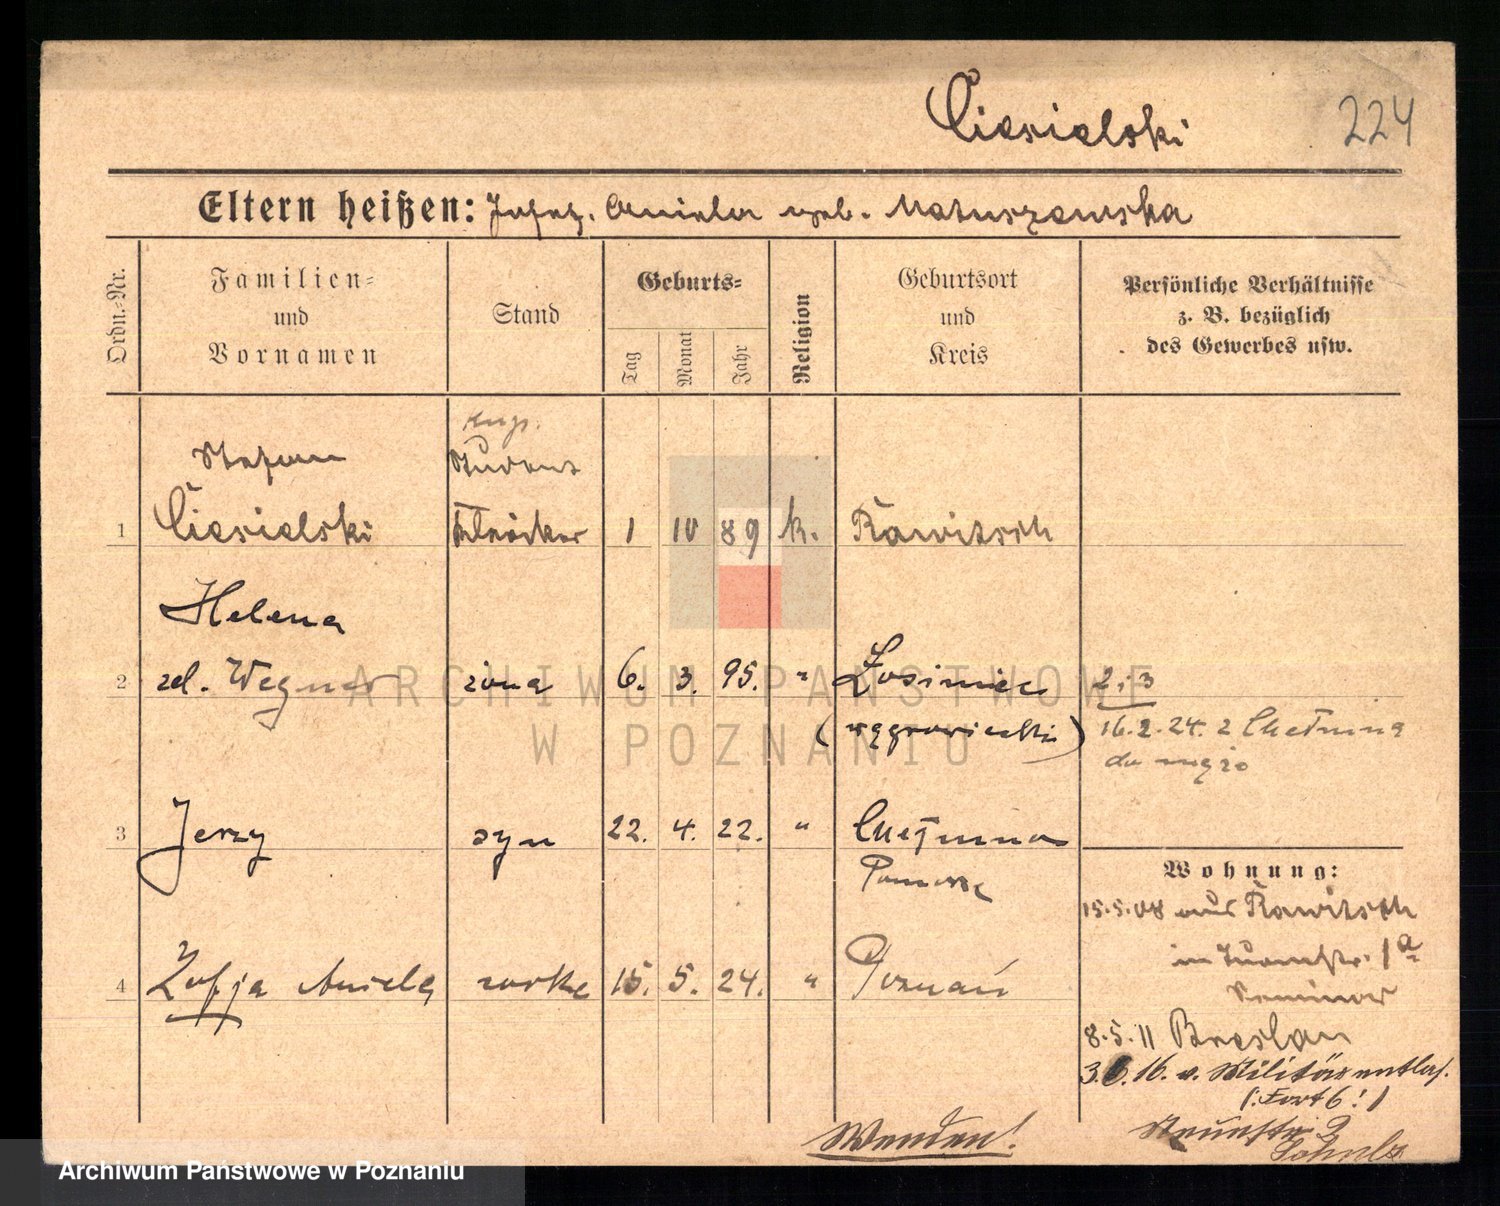 Ciesielski 224
Eltern heißen: Josef, Aniela geb. Matuszewska
Ordn.-Nr.
Familien-
und
Vornamen
Stand
Geburts-
Tag
Monat
Jahr
Religion
Geburtsort
und
Kreis
Persönliche Verhältnisse
z. B. bezüglich
des Gewerbes usw.
Stefan
1 Ciesielski 1 10 89 k. Rawitsch
Helena
2 zd. Wegner żona 6. 3. 95. " 2 i 3
(wągrowiecki) 16.2.24. z Chełmna
do męża
3 Jerzy syn 22. 4. 22. " Chełmno
Wohnung:
15.5.08 aus Rawitsch
1a
4 Zofja Aniela córka 15. 5. 24. " Poznań
Seminar
8.5.11 Breslau
3.6.16. v. Militär entlass.
(: Fort 6 :)
Wenden!
Schulz
ARCHIWUM PAŃSTWOWE
W POZNANIU
Archiwum Państwowe w Poznaniu